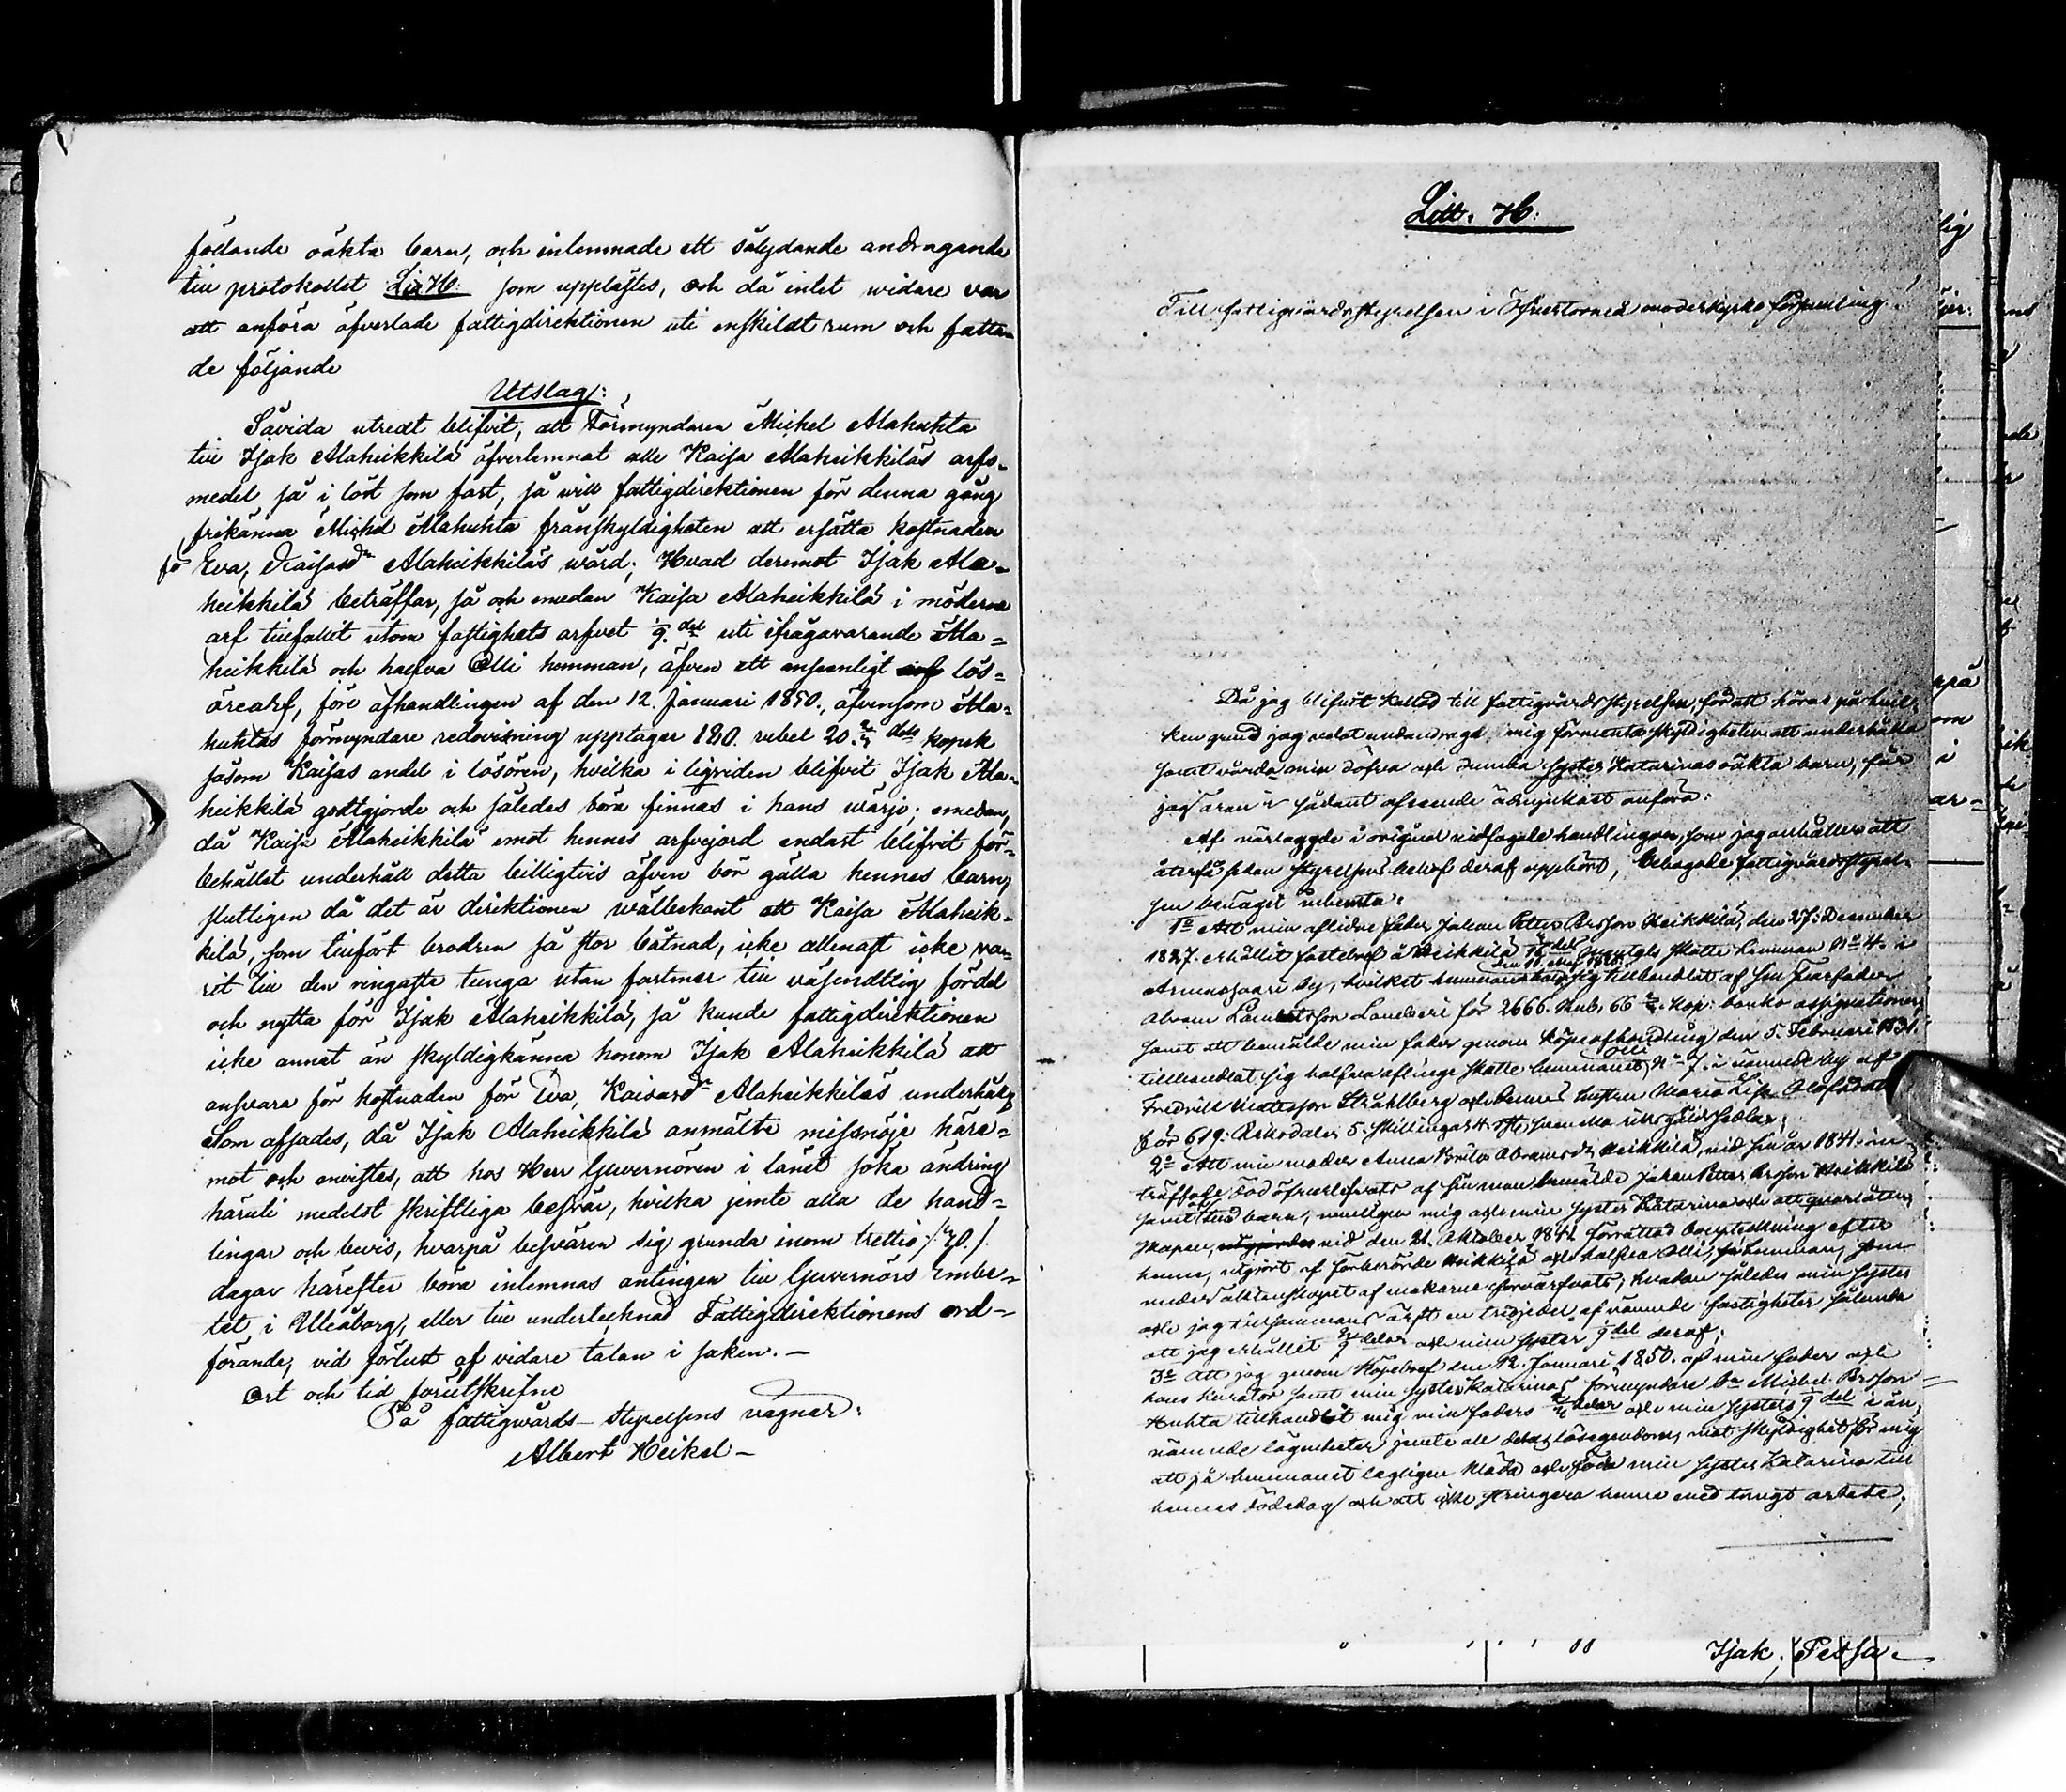 födande oäkta barn, och inlemnade ett sålydande andragande
till protokollet Litt H. som upplästes, och då intet widare var
att anföra öfverlade fattigdirektionen uti enskildt rum och fatta-
de följande
Utslag:
Såvida utredt blifvit, att Förmyndaren Michel Alahuhta
till Isak Alaheikkilä öfverlemnat alla Kaisa Alaheikkiläs arfs-
medel så i löst som fast, så will fattigdirektionen för denna gång
frikänna Michel Alahuhta från skyldigheten att ersätta kostnaden
fö Eva, Kaisasdr Alaheikkiläs wård; Hvad deremot Isak Ala-
heikkilä beträffar, så och emedan Kaisa Alaheikkilä i möderne
arf tillfallit utom fastighets arfvet 1/9 del uti ifrågavarande Ala-
heikkilä och halfva Olli hemman, äfven ett ansenligt arf lös-
örearf, före afhandlingen af den 12. Januari 1850., äfvensom Ala-
huhtas förmyndare redovisning upptager 180. rubel 20. 2/7 dels kopek
såsom Kaisas andel i lösören, hvilka i liqviden blifvit Isak Ala-
heikkilä godtgjorde och således böra finnas i hans wärjo; emedan,
då Kaisa Alaheikkilä emot hennes arfvejord endast blifvit för-
behållet underhåll detta billigtvis äfven bör gälla hennes barn,
slutligen då det är direktionen wälbekant att Kaisa Alaheik-
kilä, som tillfört brodren så stor båtnad, icke allenast icke va-
rit till den ringaste tunga utan fastmer till väsendtlig fördel
och nytta för Isak Alaheikkilä, så kunde fattigdirektionen
icke annat än skyldigkänna honom Isak Alaheikkilä att
ansvara för kostnaden för Eva, Kaisasdr Alaheikkiläs underhåll,
Som afsades, då Isak Alaheikkilä anmälte missnöje häre-
mot och anvistes, att hos Herr Guvernören i länet söka ändring
häruti medelst skriftliga besvär, hvilka jemte alla de hand-
lingar och bevis, hvarpå besvären sig grunda inom trettio /:30./.
dagar härefter böra inlemnas antingen till Guvernörs Embe-
tet i Uleåborg, eller till undertecknad Fattigdirektionens ord-
förande, vid förlust af vidare talan i saken. —
Ort och tid förutskrifne
På fattigwårds-styrelsens vägnar:
Albert Heikel —
Litt. H.
Till fattigvårdsstyrelsen i Öfvertorneå moderkyrko församling!
Då jag blifvit kallad till fattigvårdsstyrelsen, för att höras på hvil-
ken grund jag velat undandraga mig förmenta skyldigheten att underhålla
samt vårda min döfva och dumba syster Katarinas oäkta barn, får
jag äran i sådant afseende ödmjukast anföra:
Af närlaggde i original vidfogade handlingar, som jag anhåller att
återfå sedan styrelsens behof deraf upphört, behagade fattigvårdsstyrel-
sen benäget inhemta:
1o Att min aflidne fader Johan Petter Persson Heikkilä, den 27. December
1827. erhållit fastebref å Heikkilä skatte hemman No 4. i
Armassaari by, hvilket hemman han sig tillhandlat af sin Svärfader
Abram Lanbeeri för 2666. Rub. 66 2/3. kop: banko assignationer
samt att bemälde min fader genom köpeafhandling den 5. Februari 1831.
tillhandlat sig halfva aflinge skatte hemmanet Olli No 7. i nämnde by af
Fredrik Mattsson Stråhlberg och dennes hustru Maria Lisa Olofsdotter
för 619: Riksdaler 5. skillingar 4. rst. svenska riksgäldssedlar;
2o Att min moder Anna Brita Abramsdr Heikkilä, vid sin år 1841. in-
träffade död öfverlefvats af sin man bemälde Johan Petter Persson Heikkilä
samt två barn, nemligen mig och min syster Katarina och att qvarlåten-
skapen, utgjordes vid den 21. Oktober 1841. förrättad bouppteckning efter
henne, utgjort af förberörde Heikkilä och halfva Olli hemman, som
under äktenskapet af makarne förvärfvats; hvadan således min syster
och jag tillsammans ärft en tredjedel af nämnde fastigheter sålunda
att jag erhållit 2/9 delar och min syster 1/9 del deraf;
3o Att jag genom Köpebref den 12. Januari 1850. af min fader och
hans kurator samt min syster Katarinas förmyndare Bn Michel Persson-
Huhta tillhandlat mig min faders delar och min systers 1/9 del i än-
nämnde lägenheter jemte all deras lösegendom, mot skyldighet för mig
att på hemmanet lagligen kläda och föda min syster Katarina till
hennes dödsdag och att icke stringera henne med tungt arbete;
Isak, Petsa.